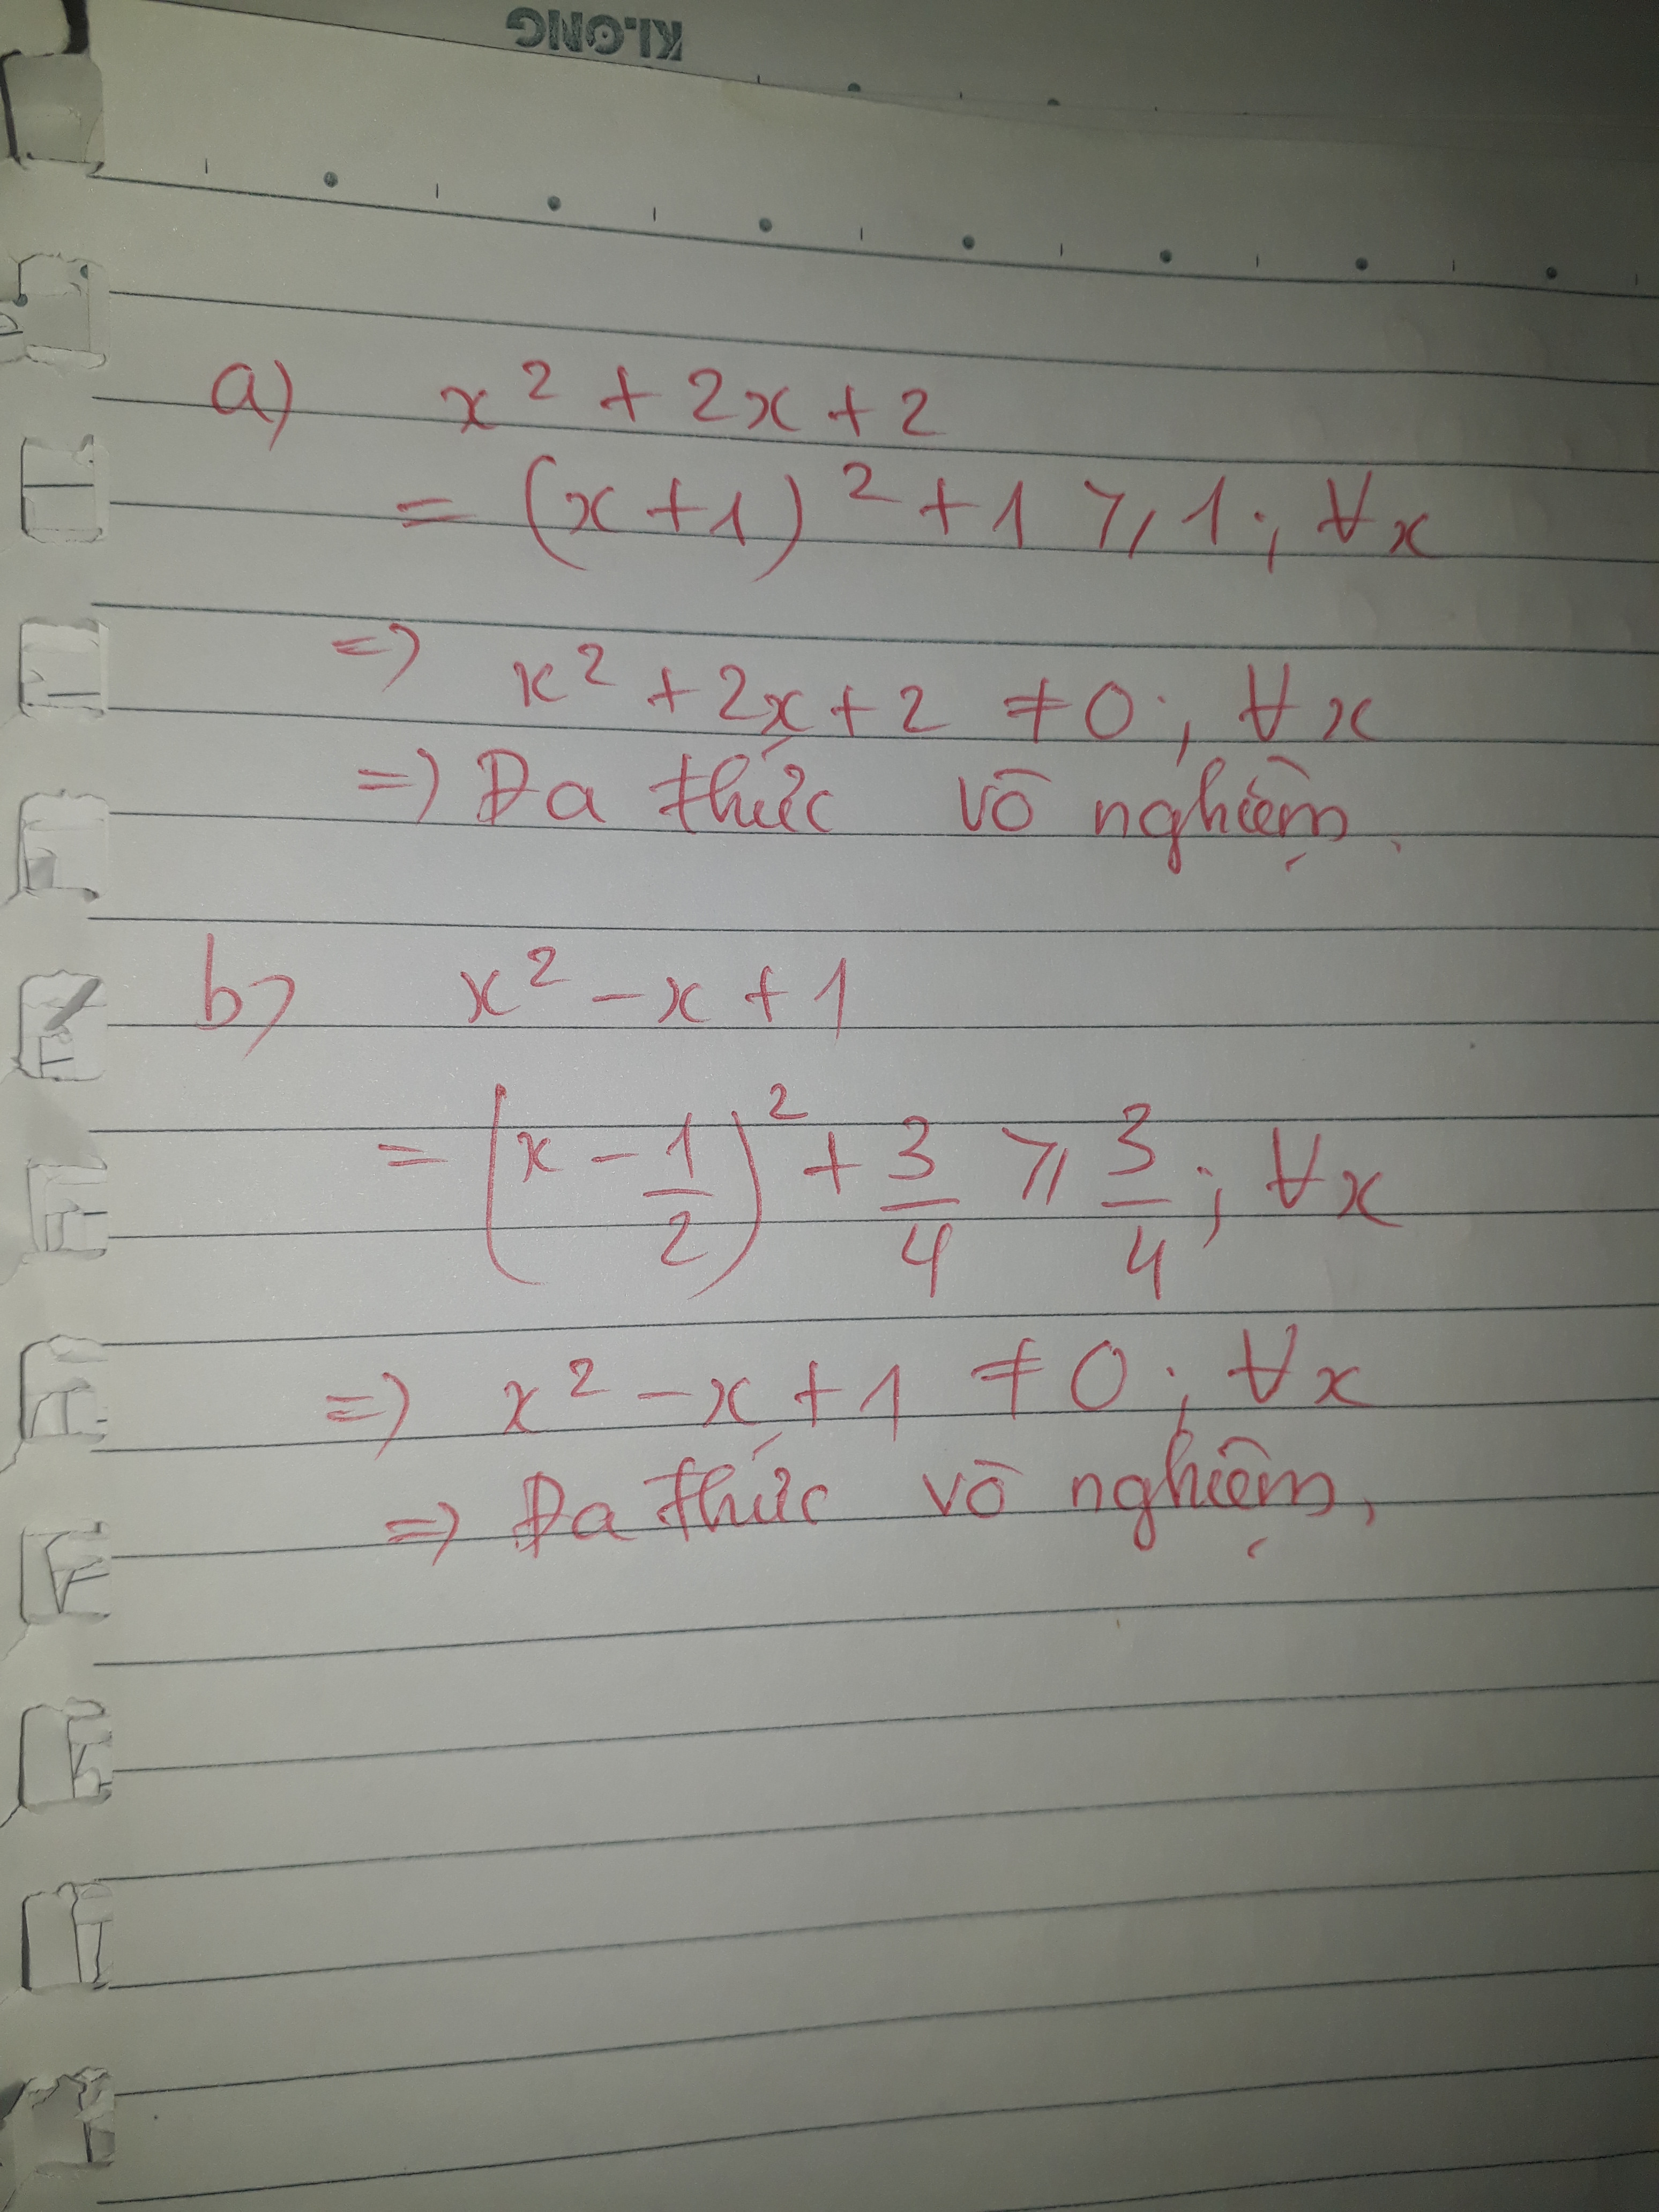 KLONG
a) x² + 2x + 2
= (x + 1)² + 1 ≥ 1 ; ∀x
=> x² + 2x + 2 ≠ 0 ; ∀x
=> Đa thức vô nghiệm.
b) x² - x + 1
= (x - 1/2)² + 3/4 ≥ 3/4 ; ∀x
=> x² - x + 1 ≠ 0 ; ∀x
=> Đa thức vô nghiệm,